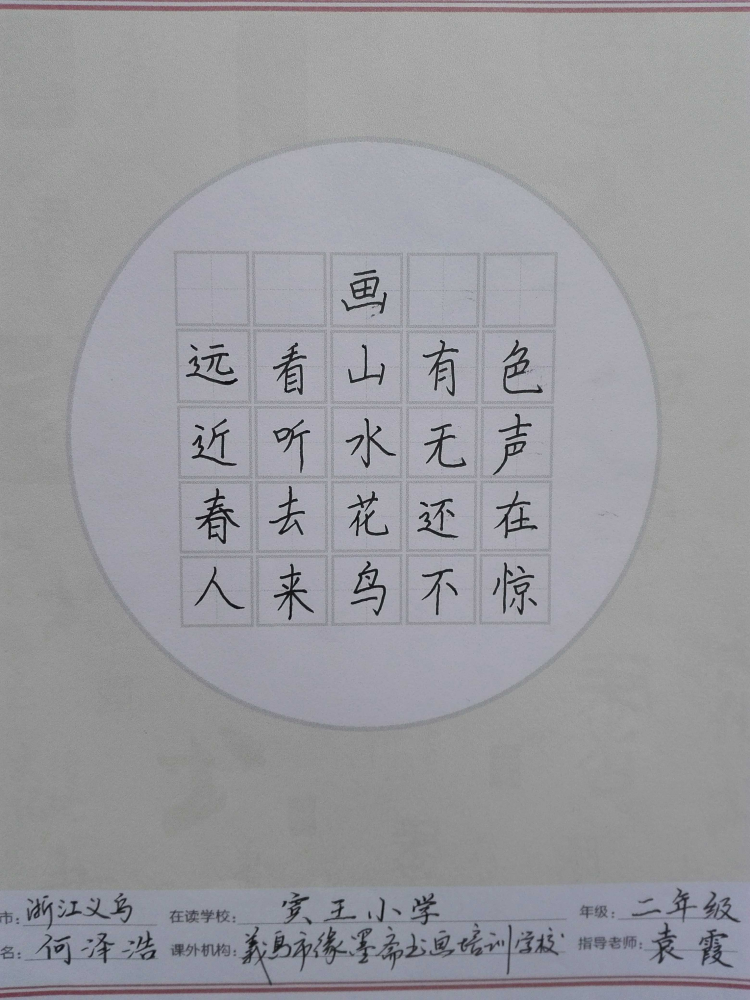 画
远看山有色
近听水无声
春去花还在
人来鸟不惊
市：浙江义乌 在读学校：宾王小学 年级：二年级
名：何泽浩 课外机构：義乌市缘墨斋书画培训学校 指导老师：袁霞